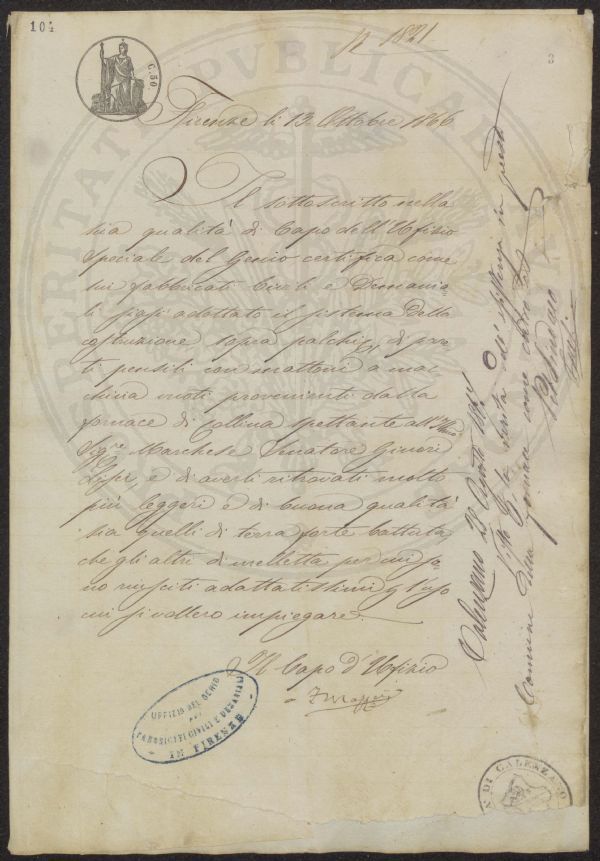 104
C. 50
N 1821
3
Firenze li 13 Ottobre 1866
Il sottoscritto nella
sua qualità di Capo dell'Ufizio
Speciale del Genio certifica come
nei fabbricati Civili e Demania
li siasi adottato il sistema della
costruzione sopra palchi, di pare
ti pensili con mattoni a mac
china vuoti provenienti dalla
fornace di Collina spettante all'Illmo
Sigre Marchese Senatore Ginori
Lisci, e di averli ritrovati molto
più leggeri e di buona qualità
sia quelli di terra forte battuta
che gli altri di melletta per cui so
no riusciti adattatissimi per l'uso
cui si vollero impiegare.
Il Capo d'Ufizio
UFFIZIO DEL GENIO
PEI
FABBRICATI CIVILI E DEMANIALI
IN FIRENZE
Calenzano 28 Agosto 1867
Visto per la verità ed esistenza in questa
Comunità della fornace come dicontro
Il Sindaco
DI CALENZANO